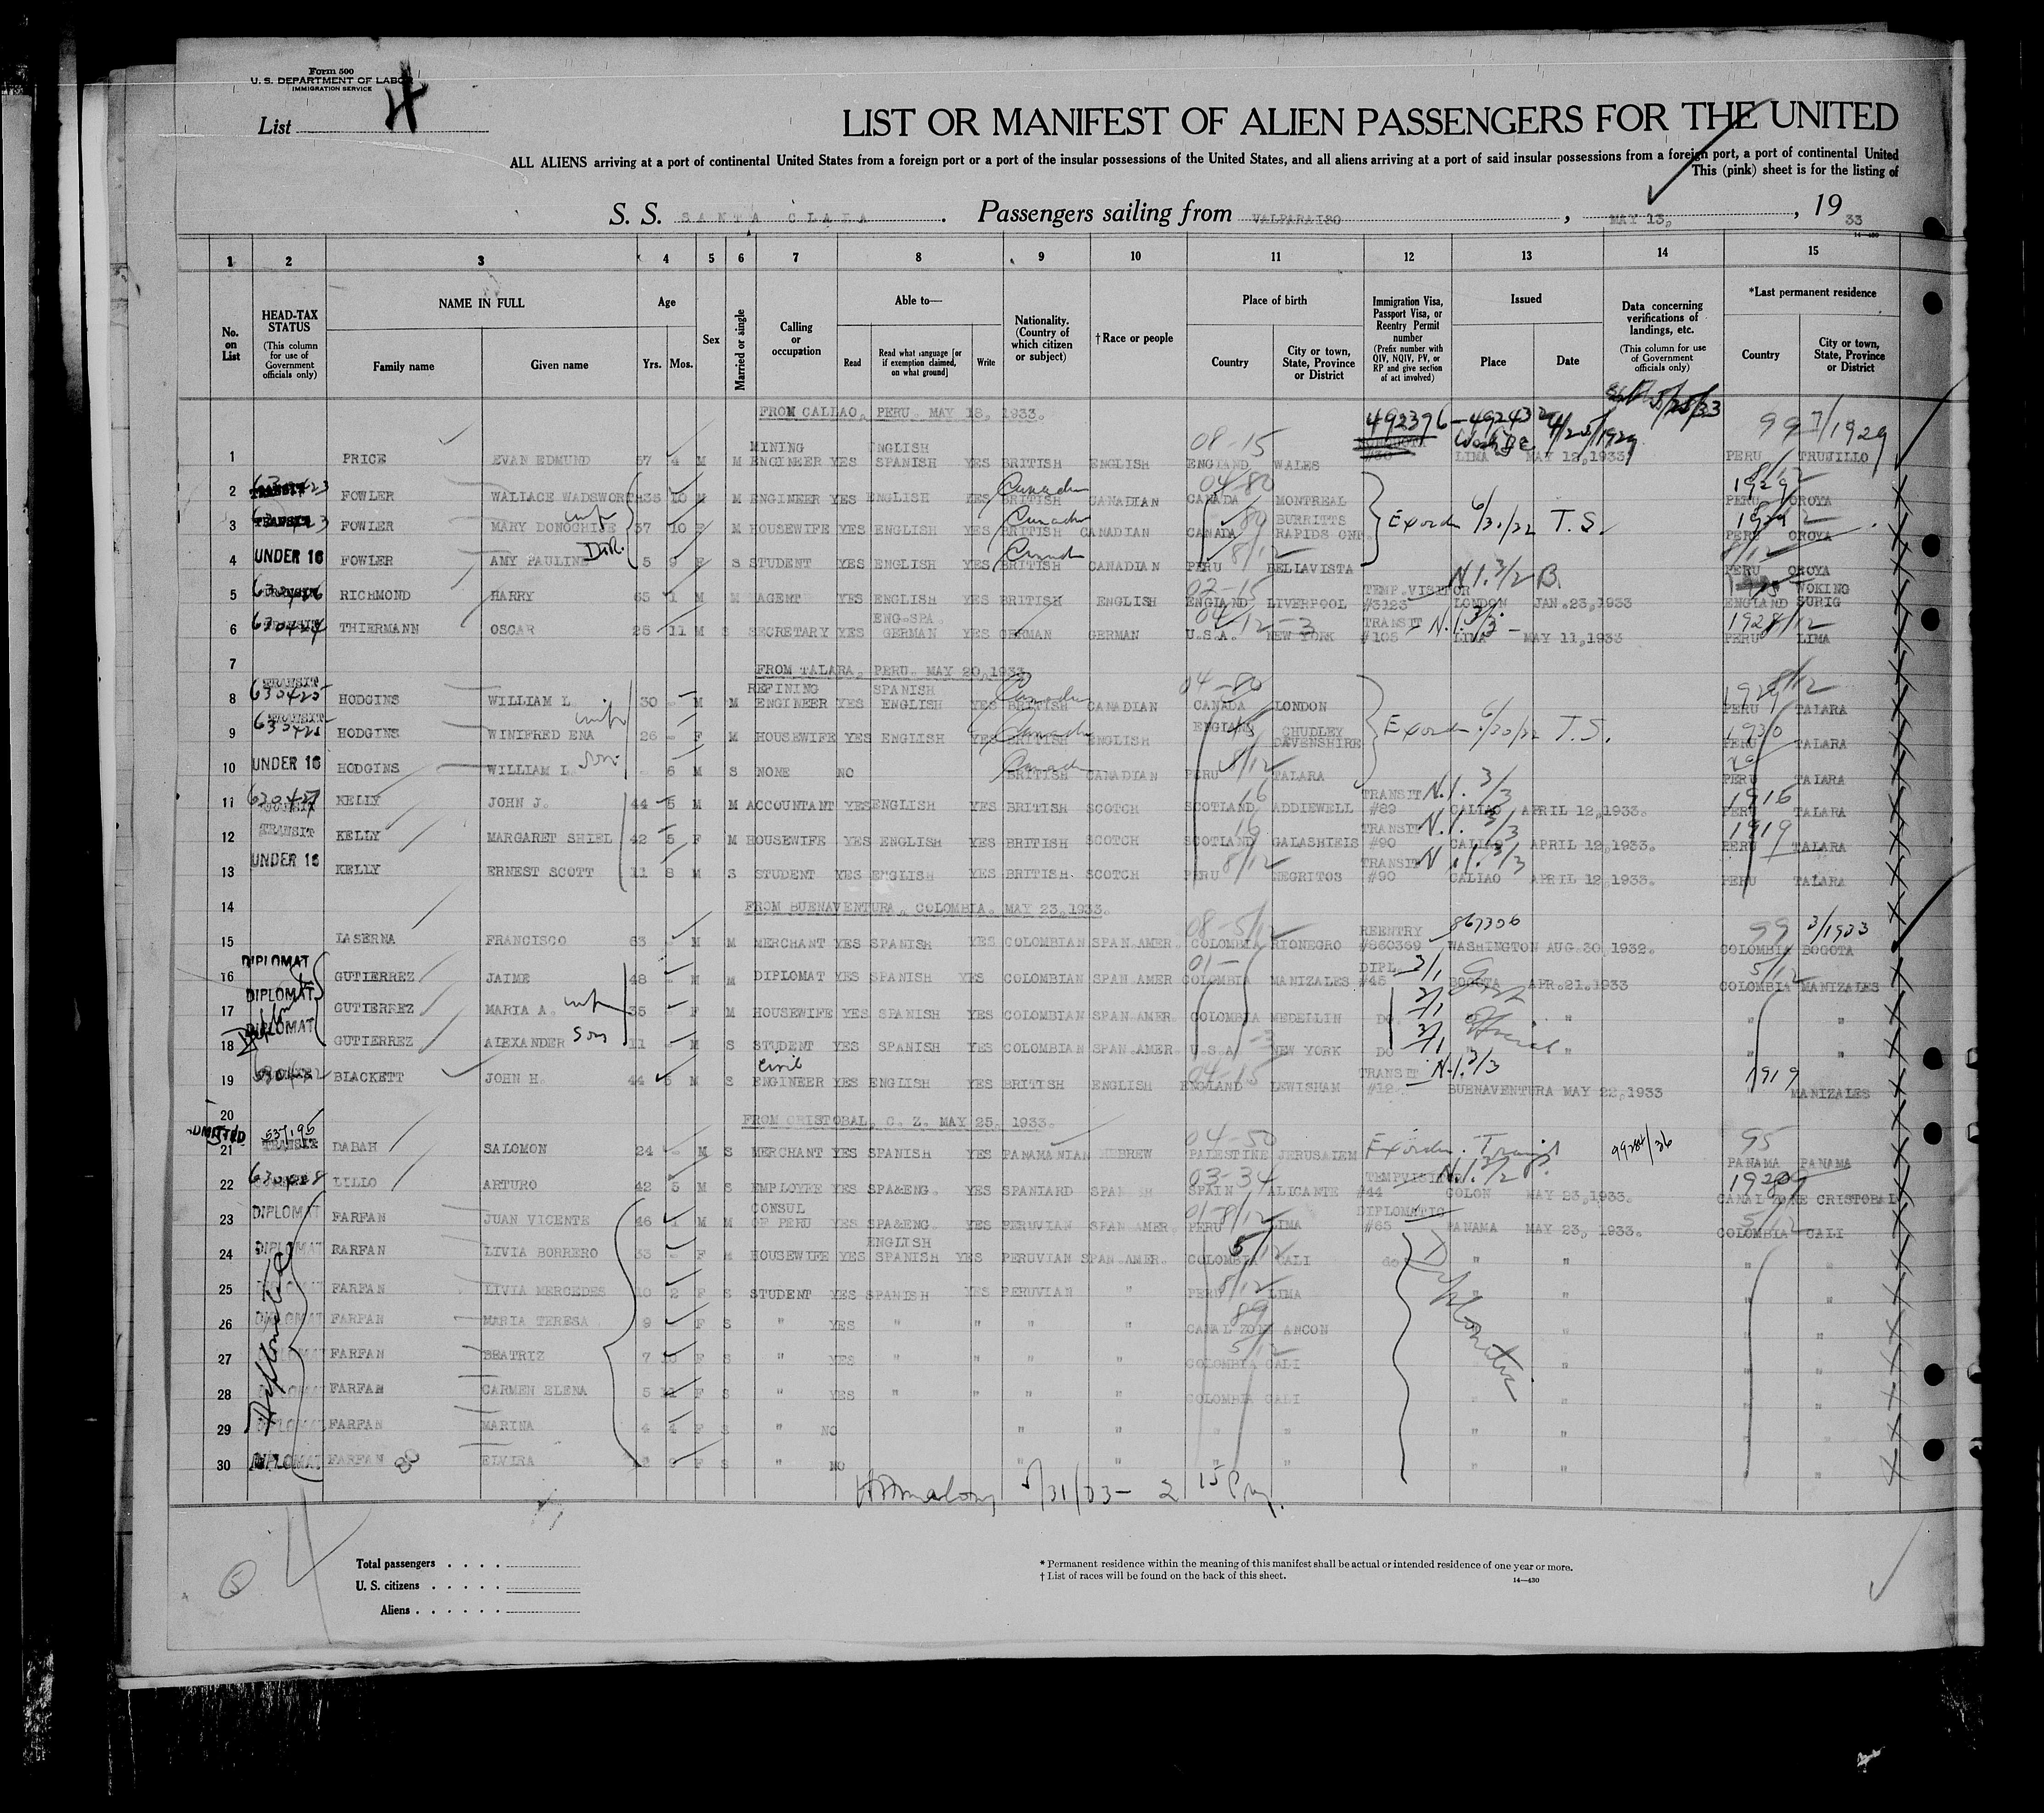 Form 500
U. S. DEPARTMENT OF LABOR
IMMIGRATION SERVICE
List 4
LIST OR MANIFEST OF ALIEN PASSENGERS FOR THE UNITED
ALL ALIENS arriving at a port of continental United States from a foreign port or a port of the insular possessions of the United States, and all aliens arriving at a port of said insular possessions from a foreign port, a port of continental United
This (pink) sheet is for the listing of
S. S. SANTA CLARA . Passengers sailing from VALPARAISO , MAY 13, , 19 33
14-430
1 2 3 4 5 6 7 8 9 10 11 12 13 14 15
No. on List
HEAD-TAX STATUS (This column for use of Government officials only)
NAME IN FULL
Family name Given name
Age
Yrs. Mos.
Sex
Married or single
Calling or occupation
Able to—
Read Read what language [or if exemption claimed, on what ground] Write
Nationality. (Country of which citizen or subject)
† Race or people
Place of birth
Country City or town, State, Province or District
Immigration Visa, Passport Visa, or Reentry Permit number (Prefix number with QIV, NQIV, PV, or RP and give section of act involved)
Issued
Place Date
Data concerning verifications of landings, etc. (This column for use of Government officials only)
*Last permanent residence
Country City or town, State, Province or District
FROM CALLAO, PERU. MAY 18, 1933.
1 PRICE EVAN EDMUND 57 4 M M MINING ENGINEER YES ENGLISH SPANISH YES BRITISH ENGLISH 08-15 ENGLAND WALES 492396 LIMA MAY 12, 1933 99 7/1929 PERU TRUJILLO
2 TRANSIT FOWLER WALLACE WADSWORTH 38 10 M M ENGINEER YES ENGLISH YES BRITISH Canada CANADIAN 04-80 CANADA MONTREAL PERU OROYA
3 TRANSIT FOWLER MARY DONOGHUE wife 37 10 F M HOUSEWIFE YES ENGLISH YES BRITISH Canada CANADIAN CANADA BURRITTS RAPIDS ONT. 6/30/32 T.S. PERU OROYA
4 UNDER 16 FOWLER AMY PAULINE Dtr. 5 9 F S STUDENT YES ENGLISH YES BRITISH CANADIAN PERU 8/12 BELLAVISTA PERU OROYA
5 RICHMOND HARRY 65 1 M M AGENT YES ENGLISH YES BRITISH ENGLISH 02-15 ENGLAND LIVERPOOL TEMP. VISITOR #3123 N.I. 3/2 B. LONDON JAN. 23, 1933 ENGLAND WOKING
6 THIERMANN OSCAR 25 11 M S SECRETARY YES ENG-SPA. GERMAN YES GERMAN GERMAN U.S.A. NEW YORK TRANSIT #105 N.I. 3/3 LIMA MAY 11, 1933 1928/12 PERU LIMA
7 FROM TALARA, PERU. MAY 20, 1933
8 TRANSIT 630425 HODGINS WILLIAM L. 30 - M M REFINING ENGINEER YES SPANISH ENGLISH YES BRITISH Canadian CANADIAN 04-80 CANADA LONDON PERU TALARA
9 TRANSIT HODGINS WINIFRED ENA wife 26 - F M HOUSEWIFE YES ENGLISH YES BRITISH ENGLISH ENGLAND CHUDLEY DAVENSHIRE 6/30/32 T.S. 1930 PERU TALARA
10 UNDER 16 HODGINS WILLIAM L. Son - 6 M S NONE NO BRITISH CANADIAN PERU 8/12 TALARA PERU TALARA
11 KELLY JOHN J. 44 5 M M ACCOUNTANT YES ENGLISH YES BRITISH SCOTCH SCOTLAND 16 ADDIEWELL TRANSIT #89 N.I. 3/3 CALLAO APRIL 12, 1933. 1916 PERU TALARA
12 TRANSIT KELLY MARGARET SHIEL 42 5 F M HOUSEWIFE YES ENGLISH YES BRITISH SCOTCH SCOTLAND 16 GALASHIELS TRANSIT #90 N.I. 3/3 CALLAO APRIL 12, 1933. 1919 PERU TALARA
13 UNDER 16 KELLY ERNEST SCOTT 11 8 M S STUDENT YES ENGLISH YES BRITISH SCOTCH PERU 8/12 NEGRITOS TRANSIT #90 N.I. 3/3 CALLAO APRIL 12, 1933. PERU TALARA
14 FROM BUENAVENTURA, COLOMBIA. MAY 23, 1933.
15 LASERNA FRANCISCO 53 - M M MERCHANT YES SPANISH YES COLOMBIAN SPAN.AMER. 08-5/12 COLOMBIA RIONEGRO REENTRY #860369 867306 WASHINGTON AUG. 30, 1932. 99 3/1933 COLOMBIA BOGOTA
16 DIPLOMAT GUTIERREZ JAIME 48 - M M DIPLOMAT YES SPANISH YES COLOMBIAN SPAN AMER 01- COLOMBIA MANIZALES DIPL. #45 3/1 BOGOTA APR. 21, 1933 5/12 COLOMBIA MANIZALES
17 DIPLOMAT GUTIERREZ MARIA A. wife 35 - F M HOUSEWIFE YES SPANISH YES COLOMBIAN SPAN AMER. COLOMBIA MEDELLIN DO. 3/1 " " " "
18 DIPLOMAT GUTIERREZ ALEXANDER Son 11 - M S STUDENT YES SPANISH YES COLOMBIAN SPAN.AMER. U.S.A -3 NEW YORK DO 3/1 Official " " "
19 BLACKETT JOHN H. 44 5 M S Civil ENGINEER YES ENGLISH YES BRITISH ENGLISH 04-15 ENGLAND LEWISHAM TRANSIT #12 N.I. 3/3 BUENAVENTURA MAY 22, 1933 1919 MANIZALES
20 FROM CRISTOBAL, C. Z. MAY 25, 1933.
21 ADMITTED TRANSIT DABAH SALOMON 24 - M S MERCHANT YES SPANISH YES PANAMANIAN HEBREW 04-50 PALESTINE JERUSALEM Transit 95 PANAMA PANAMA
22 LILLO ARTURO 42 5 M S EMPLOYEE YES SPA&ENG. YES SPANIARD SPANISH 03-34 SPAIN ALICANTE #44 N.I. 3/2 COLON MAY 23, 1933. CANAL ZONE CRISTOBAL
23 DIPLOMAT FARFAN JUAN VICENTE 46 1 M M CONSUL OF PERU YES SPA&ENG. YES PERUVIAN SPAN AMER. 01-8/12 PERU LIMA DIPLOMATIC #65 PANAMA MAY 23, 1933. 5/12 COLOMBIA CALI
24 DIPLOMAT RARFAN LIVIA BORRERO 33 - F M HOUSEWIFE YES ENGLISH SPANISH YES PERUVIAN SPAN.AMER. COLOMBIA 5/12 CALI do " " " "
25 DIPLOMAT FARFAN LIVIA MERCEDES 10 2 F S STUDENT YES SPANISH YES PERUVIAN " PERU 8/12 LIMA " " " "
26 DIPLOMAT FARFAN MARIA TERESA 9 - F S " YES " " " " CANAL ZONE ANCON " " "
27 DIPLOMAT FARFAN BEATRIZ 7 10 F S " YES " " " " COLOMBIA 5/12 CALI " " "
28 DIPLOMAT FARFAN CARMEN ELENA 5 11 F S " YES " " " " COLOMBIA CALI " " " "
29 DIPLOMAT FARFAN MARINA 4 4 F S " NO " " " " " " " "
30 DIPLOMAT FARFAN ELVIRA F S " NO " " " " " " "
Diplomatic
5/31/33 - 2 15 Pm.
Total passengers . . . . .
U. S. citizens . . . . .
Aliens . . . . . .
* Permanent residence within the meaning of this manifest shall be actual or intended residence of one year or more.
† List of races will be found on the back of this sheet.
14—430